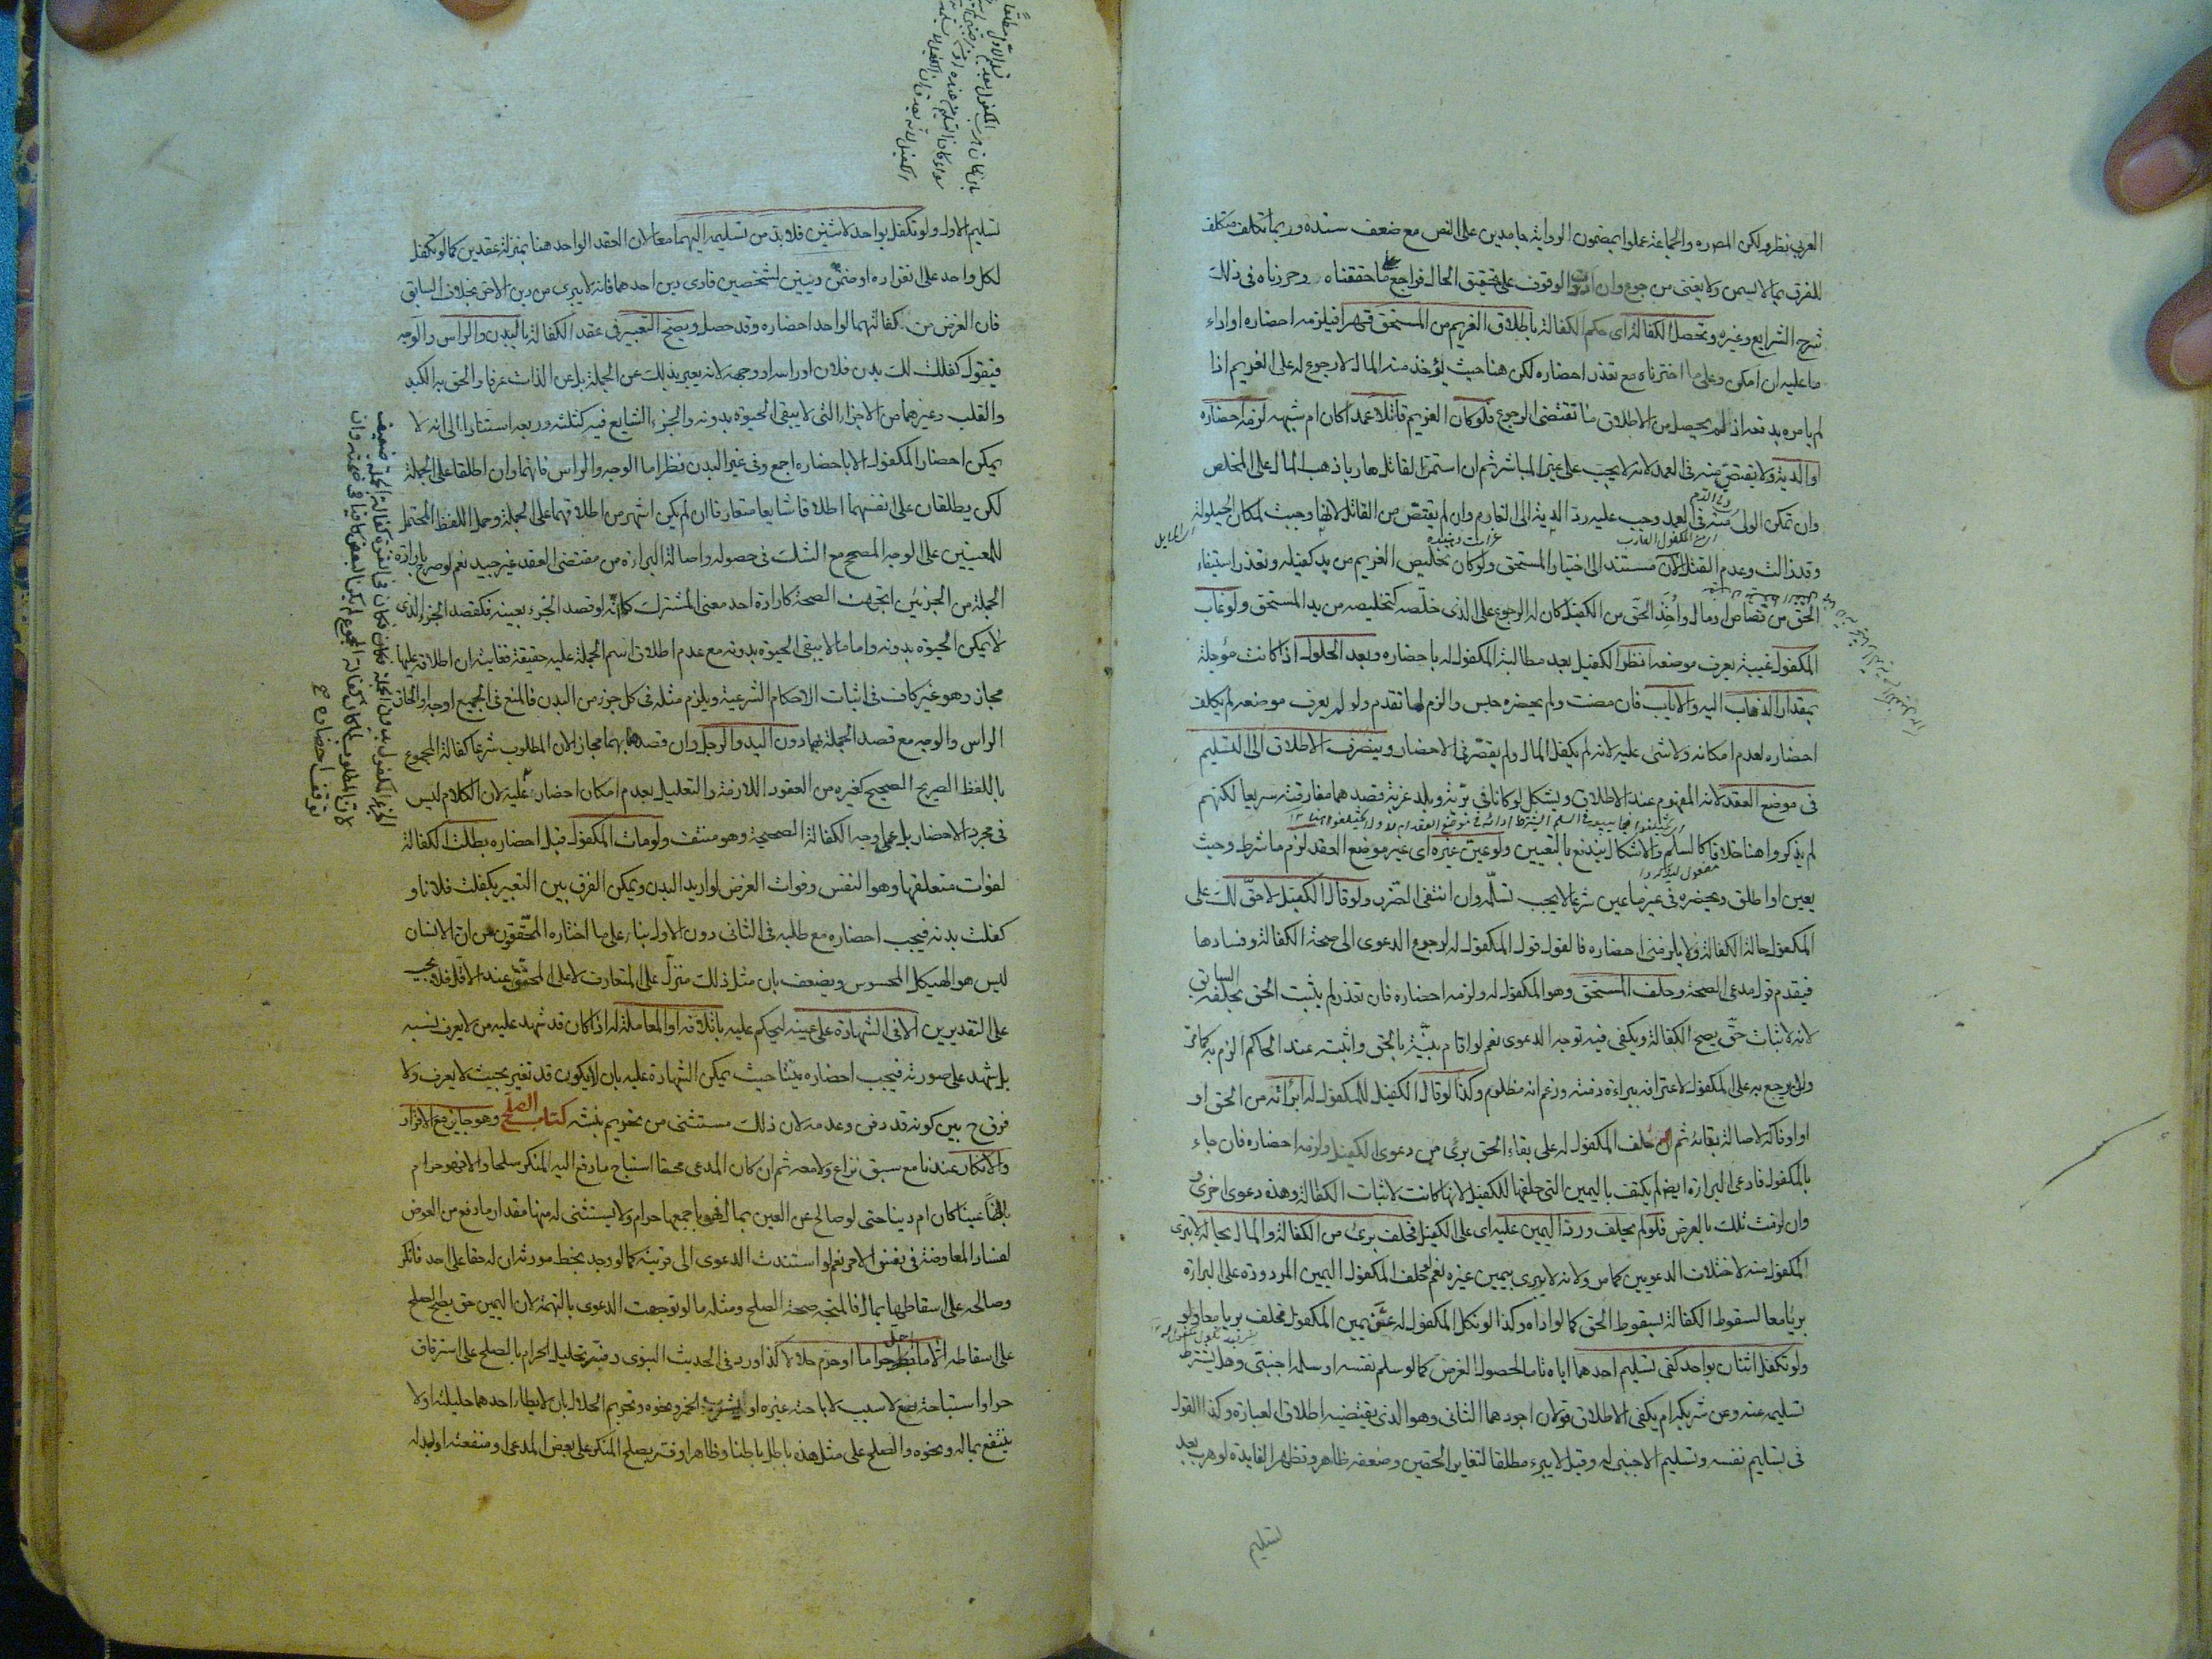 العربي نظر ولكن المصره والجماعة عملوا بمضمون الرواية جامدين على النص مع ضعف سنده وربما تكلف متكلف
للفرق بما لا يسمن ولا يغنى من جوع وان اردت الوقوف على تحقيق الحال فراجع ما حققناه وحررناه فى ذلك
شرح الشرايع وغيره وتحصل الكفالة اى حكم الكفالة باطلاق الغريم من المستحق قهرا فيلزمه احضاره او اداء
ما عليه ان امكن وعلى ما اخترناه مع تعذر احضاره لكن هنا حيث يؤخذ منه المال لا رجوع له على الغريم اذا
لم يامره بدفعه اذ لم يحصل من الاطلاق ما تقتضى الرجوع فلو كان الغريم قاتلا عمدا كان ام شبهه لزمه احضاره
او الدية ولا يقتص منه فى العمد لانه لا يجب على غير المباشر ثم ان استمر القاتل هاربا ذهب المال على المخلص
وان تمكن الولى منه فى العمد وجب عليه رد الدية الى الغارم وان لم يقتص من القاتل لانها وجبت لمكان الحيلولة
وقد زالت وعدم القتل الآن مستند الى اختيار المستحق ولو كان تخليص الغريم من يد كفيله وتعذر استيفاء
الحق من قصاص او مال واخذ الحق من الكفيل كان له الرجوع على الذى خلصه كتخليصه من يد المستحق ولو غاب
المكفول غيبة يعرف موضعه انظر الكفيل بعد مطالبة المكفول له باحضاره وبعد الحلول اذا كانت مؤجلة
بمقدار الذهاب اليه والاياب فان مضت ولم يحضره حبس والزم لما تقدم ولو لم يعرف موضعه لم يكلف
احضاره لعدم امكانه ولا شئ عليه لانه لم يكفل المال ولم يقصر فى الاحضار وينصرف الاطلاق الى التسليم
فى موضع العقد لانه المفهوم عند الاطلاق ويشكل لو كانا فى برّية وبلد غربة قصدهما مفارقته سريعا لكنهم
لم يذكروا هنا خلافا كالسلم والاشكال يندفع بالتعيين ولو عين غيره اى غير موضع العقد لزم ما شرط وحيث
يعين او اطلق ويحضره فى غير ما عين شرعا لا يجب تسلمه وان انتفى الضرر ولو قال الكفيل لا حق لك على
المكفول حالة الكفالة ولا يلزمنى احضاره فالقول قول المكفول له لرجوع الدعوى الى صحة الكفالة وفسادها
فيقدم قول مدعى الصحة وحلف المستحق وهو المكفول له ولزمه احضاره فان تعذر لم يثبت الحق بحلفه السابق
لانه لاثبات حق يصح الكفالة ويكفى فيه توجه الدعوى نعم لو اقام بينة بالحق واثبته عند الحاكم الزم به كما مر
ولا يرجع به على المكفول لاعترافه ببراءة ذمته وزعم انه مظلوم وكذا لو قال الكفيل للمكفول له ابرأته من الحق او
او اوفاكه لاصالة بقائه ثم ان حلف المكفول له على بقاء الحق برئ من دعوى الكفيل ولزمه احضاره فان جاء
بالمكفول فادعى البراءة ايضا لم يكتف باليمين التى حلفها للكفيل لانها كانت لاثبات الكفالة وهذه دعوى اخرى
وان لزمت تلك بالعرض فلو لم يحلف ورد اليمين عليه اى على الكفيل فحلف برئ من الكفالة والمال بحاله لا يبرى
المكفول منه لاختلاف الدعويين كما مر ولانه لا يبرى بيمين غيره نعم لو حلف المكفول اليمين المردودة على البراءة
بريا معا لسقوط الكفالة بسقوط الحق كما لو اداه وكذا لو نكل المكفول له عن يمين المكفول فحلف بريا معا
ولو تكفل اثنان بواحد كفى تسليم احدهما اياه تاما لحصول الغرض كما لو سلم نفسه او سلمه اجنبى وهل يشترط
تسليمه عنه وعن شريكه ام يكفى الاطلاق قولان اجودهما الثانى وهو الذى يقتضيه اطلاق العبارة وكذا القول
فى تسليم نفسه وتسليم الاجنبى له وقيل لا يبرء مطلقا لتغاير الحقين وضعفه ظاهر وتظهر الفايدة لو هرب بعد
تسليم
تسليم الاول ولو تكفل بواحد لاثنين فلا بد من تسليمه اليهما معا لان العقد الواحد هنا بمنزلة عقدين كما لو تكفل
لكل واحد على انفراده او ضمن دينين لشخصين فادى دين احدهما فانه لا يبرى من دين الاخر بخلاف السابق
فان الغرض من كفالتهما لواحد احضاره وقد حصل ويصح التعبير فى عقد الكفالة بالبدن والراس والوجه
فيقول كفلت لك بدن فلان او راسه او وجهه لانه يعبر بذلك عن الجملة بل عن الذات عرفا والحق به الكبد
والقلب وغيرهما من الاجزاء التى لا يبقى الحيوة بدونه والجزء الشايع فيه كثلثه وربعه استنادا الى انه لا
يمكن احضار المكفول الا باحضاره اجمع وفى غير البدن نظر اما الوجه والراس فانهما وان اطلقا على الجملة
لكن يطلقان على انفسهما اطلاقا شايعا متعارفا ان لم يكن اشهر من اطلاقهما على الجملة وحمل اللفظ المحتمل
للمعنيين على الوجه المصحح مع الشك فى حصوله واصالة البراءة من مقتضى العقد غير جيد نعم لو صرح بارادة
الجملة من الجزئين اتجهت الصحة كارادة احد معنى المشترك كما انه لو قصد الجزء بعينه فكقصد الجزء الذى
لا يمكن الحيوة بدونه واما ما لا يبقى الحيوة بدونه مع عدم اطلاق اسم الجملة عليه حقيقة فغايته ان اطلاقه عليها
مجاز وهو غير كاف فى اثبات الاحكام الشرعية ويلزم مثله فى كل جزء من البدن فالمنع فى الجميع اوجه او الحاق
الراس والوجه مع قصد الجملة بهما دون اليد والرجل وان قصدها بهما مجازا لان المطلوب شرعا كفالة المجموع
باللفظ الصريح الصحيح كغيره من العقود اللازمة والتعليل بعدم امكان احضاره عليه لان الكلام ليس
فى مجرد الاحضار بل على وجه الكفالة الصحيحة وهو منتف ولو مات المكفول قبل احضاره بطلت الكفالة
لفوات متعلقها وهو النفس وفوات الغرض لو اريد البدن ويمكن الفرق بين التعبير بكفلت فلانا و
كفلت بدنه فيجب احضاره مع طلبه فى الثانى دون الاول بناء على ما اختاره المحققون من ان الانسان
ليس هو الهيكل المحسوس ويضعف بان مثل ذلك منزل على المتعارف لا على المحقق عند الاقل فلا يجب
على التقديرين الا فى الشهادة على عينه ليحكم عليه باتلافه او المعاملة له اذا كان قد شهد عليه من لا يعرف نسبه
بل شهد على صورته فيجب احضاره ميتا حيث يمكن الشهادة عليه بان لا يكون قد تغير بحيث لا يعرف ولا
فرق ح بين كونه قد دفن وعدمه لان ذلك مستثنى من تحريم نبشه كتاب الصلح وهو جايز مع الاقرار
والانكار عندنا مع سبق نزاع ولا معه ثم ان كان المدعى محقا استباح ما دفع اليه المنكر صلحا والا فهو حرام
باطنا عينا كان ام دينا حتى لو صالح عن العين بمال فهو باجمعها حرام ولا يستثنى له منها مقدار ما دفع من العوض
لفساد المعاوضة فى نفس الامر نعم لو استندت الدعوى الى قرينة كما لو وجد بخط مورثه ان له حقا على احد فانكر
وصالحه على اسقاطها بمال فالمتجه صحة الصلح ومثله ما لو توجهت الدعوى بالتهمة لان اليمين حق يصح الصلح
على اسقاطه الا ما احل حراما او حرم حلالا كذا ورد فى الحديث النبوى وفسر تحليل الحرام بالصلح على استرقاق
حر او استباحة بضع لا سبب لاباحته غيره او ليشرب الخمر ونحوه وتحريم الحلال بان لا يطأ احدهما حليلته او لا
ينتفع بماله ونحوه والصلح على مثل هذه باطل باطنا وظاهرا وفسر بصلح المنكر على بعض المدعى او منفعته او بدله